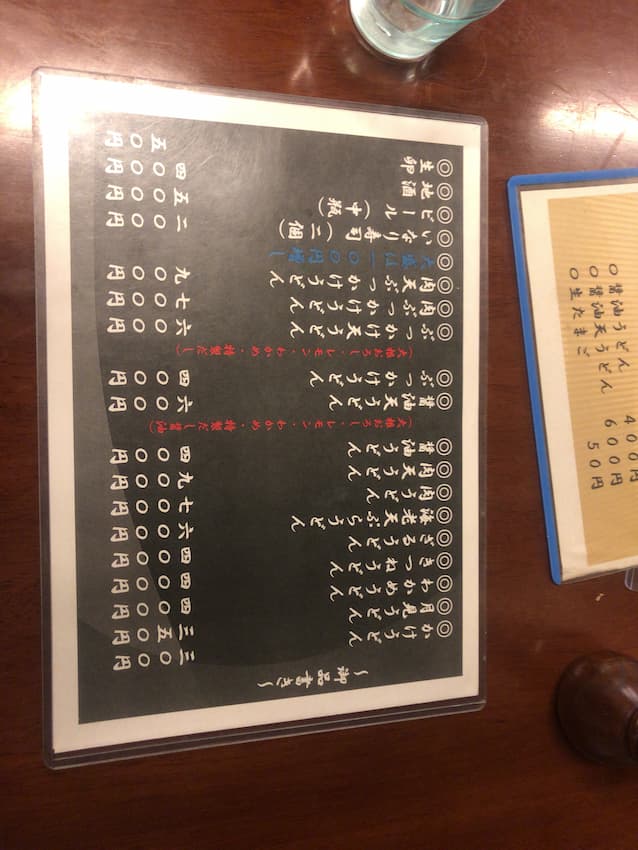 〜御品書き〜
◎かけうどん 三〇〇円
◎月見うどん 三五〇円
◎わかめうどん 四〇〇円
◎きつねうどん 四〇〇円
◎ざるうどん 四〇〇円
◎海老天ぷらうどん 六〇〇円
◎肉うどん 七〇〇円
◎肉天うどん 九〇〇円
◎醤油うどん 四〇〇円
(大根おろし・レモン・わかめ・特製だし醤油)
◎醤油天うどん 六〇〇円
◎ぶっかけうどん 四〇〇円
(大根おろし・レモン・わかめ・特製だし)
◎ぶっかけ天うどん 六〇〇円
◎肉ぶっかけうどん 七〇〇円
◎肉天ぶっかけうどん 九〇〇円
◎大盛は一〇〇円増し
◎いなり寿司(二個) 二〇〇円
◎ビール(中瓶) 五〇〇円
◎地酒 四〇〇円
◎生卵 五〇円
○醤油うどん 400円
○醤油天うどん 600円
○生たまご 50円